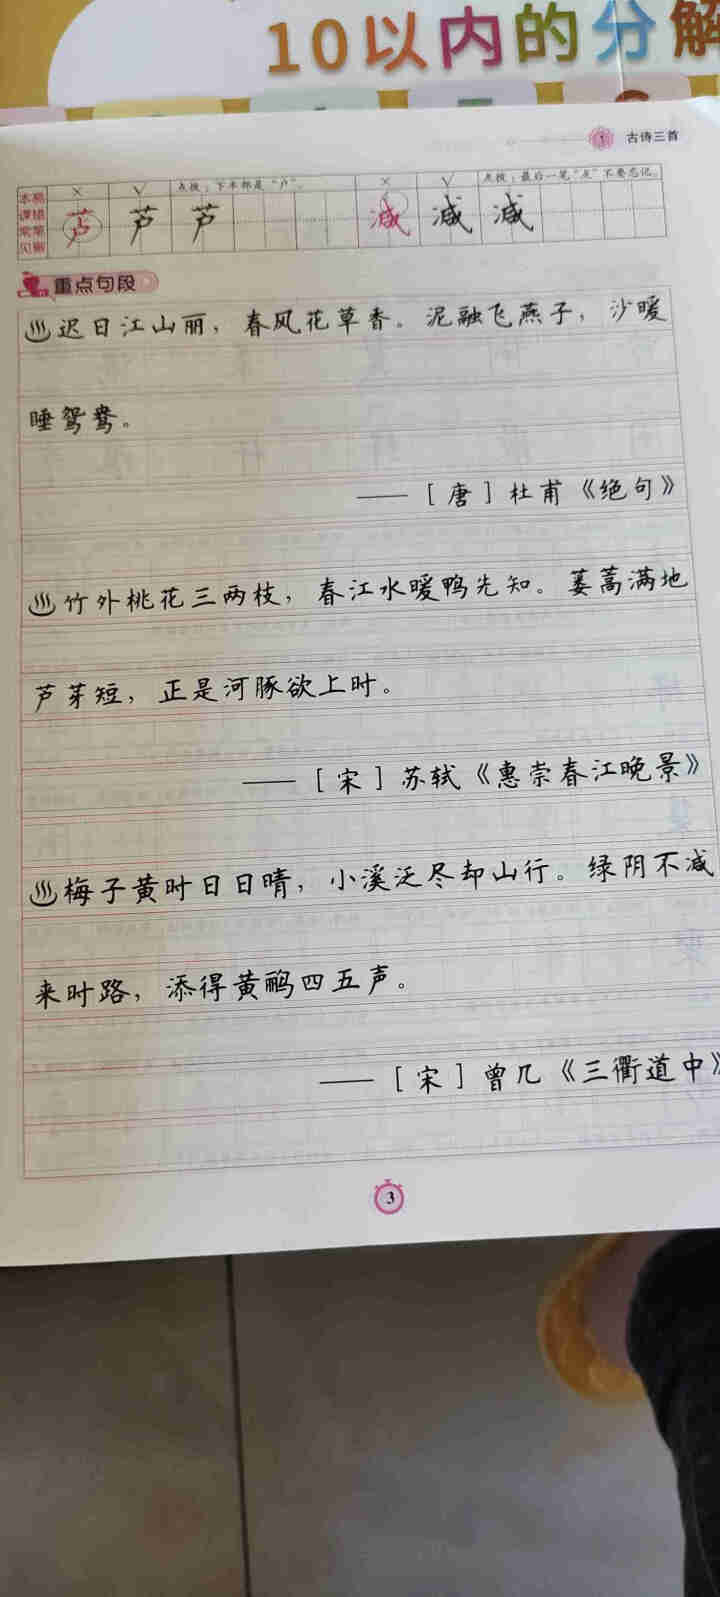 10以内的分解
1 古诗三首
本课常见 易错笔顺 × ✓ 点拨：下半部是“户”。 × ✓ 点拨：最后一笔“点”不要忘记。
芦 芦 减 减 减
重点句段
迟日江山丽，春风花草香。泥融飞燕子，沙暖
睡鸳鸯。
——［唐］杜甫《绝句》
竹外桃花三两枝，春江水暖鸭先知。蒌蒿满地
芦芽短，正是河豚欲上时。
——［宋］苏轼《惠崇春江晚景》
梅子黄时日日晴，小溪泛尽却山行。绿阴不减
来时路，添得黄鹂四五声。
——［宋］曾几《三衢道中》
3